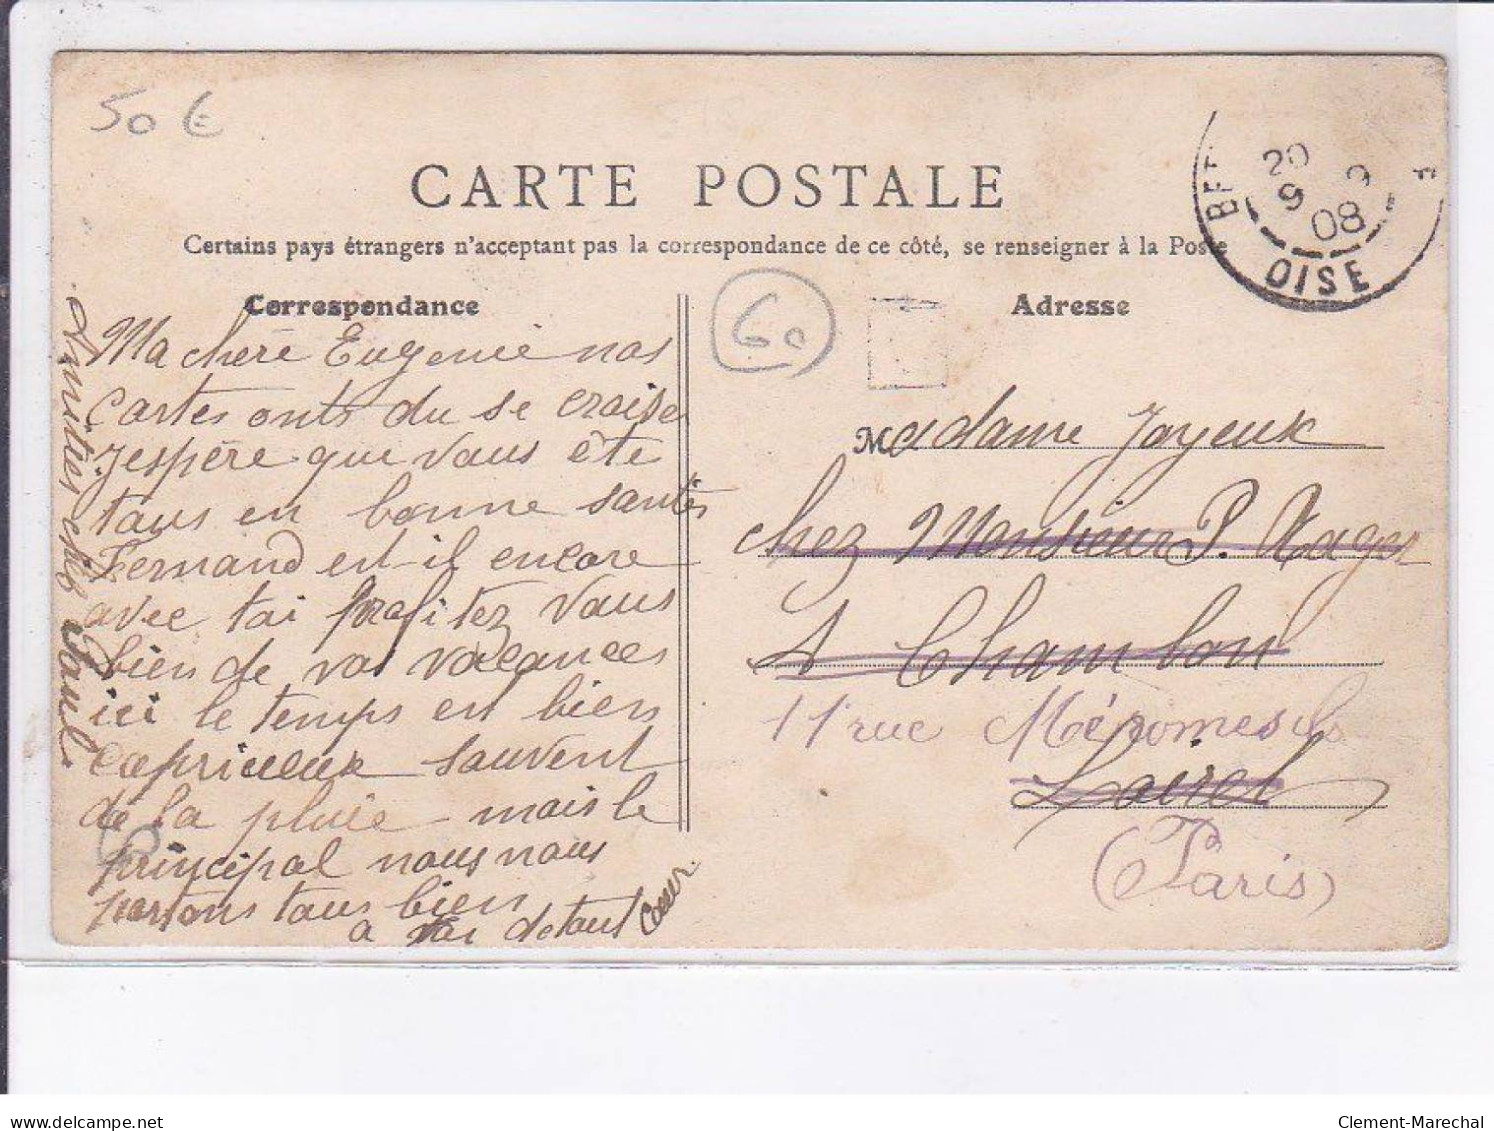 50 €
CARTE POSTALE
Certains pays étrangers n'acceptant pas la correspondance de ce côté, se renseigner à la Poste
20
9
08
OISE
Correspondance
Adresse
60
Ma chère Eugenie nos
cartes onts du se croiser
Jespère que vous ête
tous en bonne santés
Fernand est-il encore
avec toi profitez vous
bien de vos vacances
ici le temps est bien
capricieux souvent
de la pluie mais le
principal nous nous
portons tous bien
a toi de tout cœur
Amities chez Paul
Madame Joyeux
chez Monsieur P. Nager
A Chambon
11 rue Méromesnil
Loiret
(Paris)
delcampe.net
Clement-Marechal